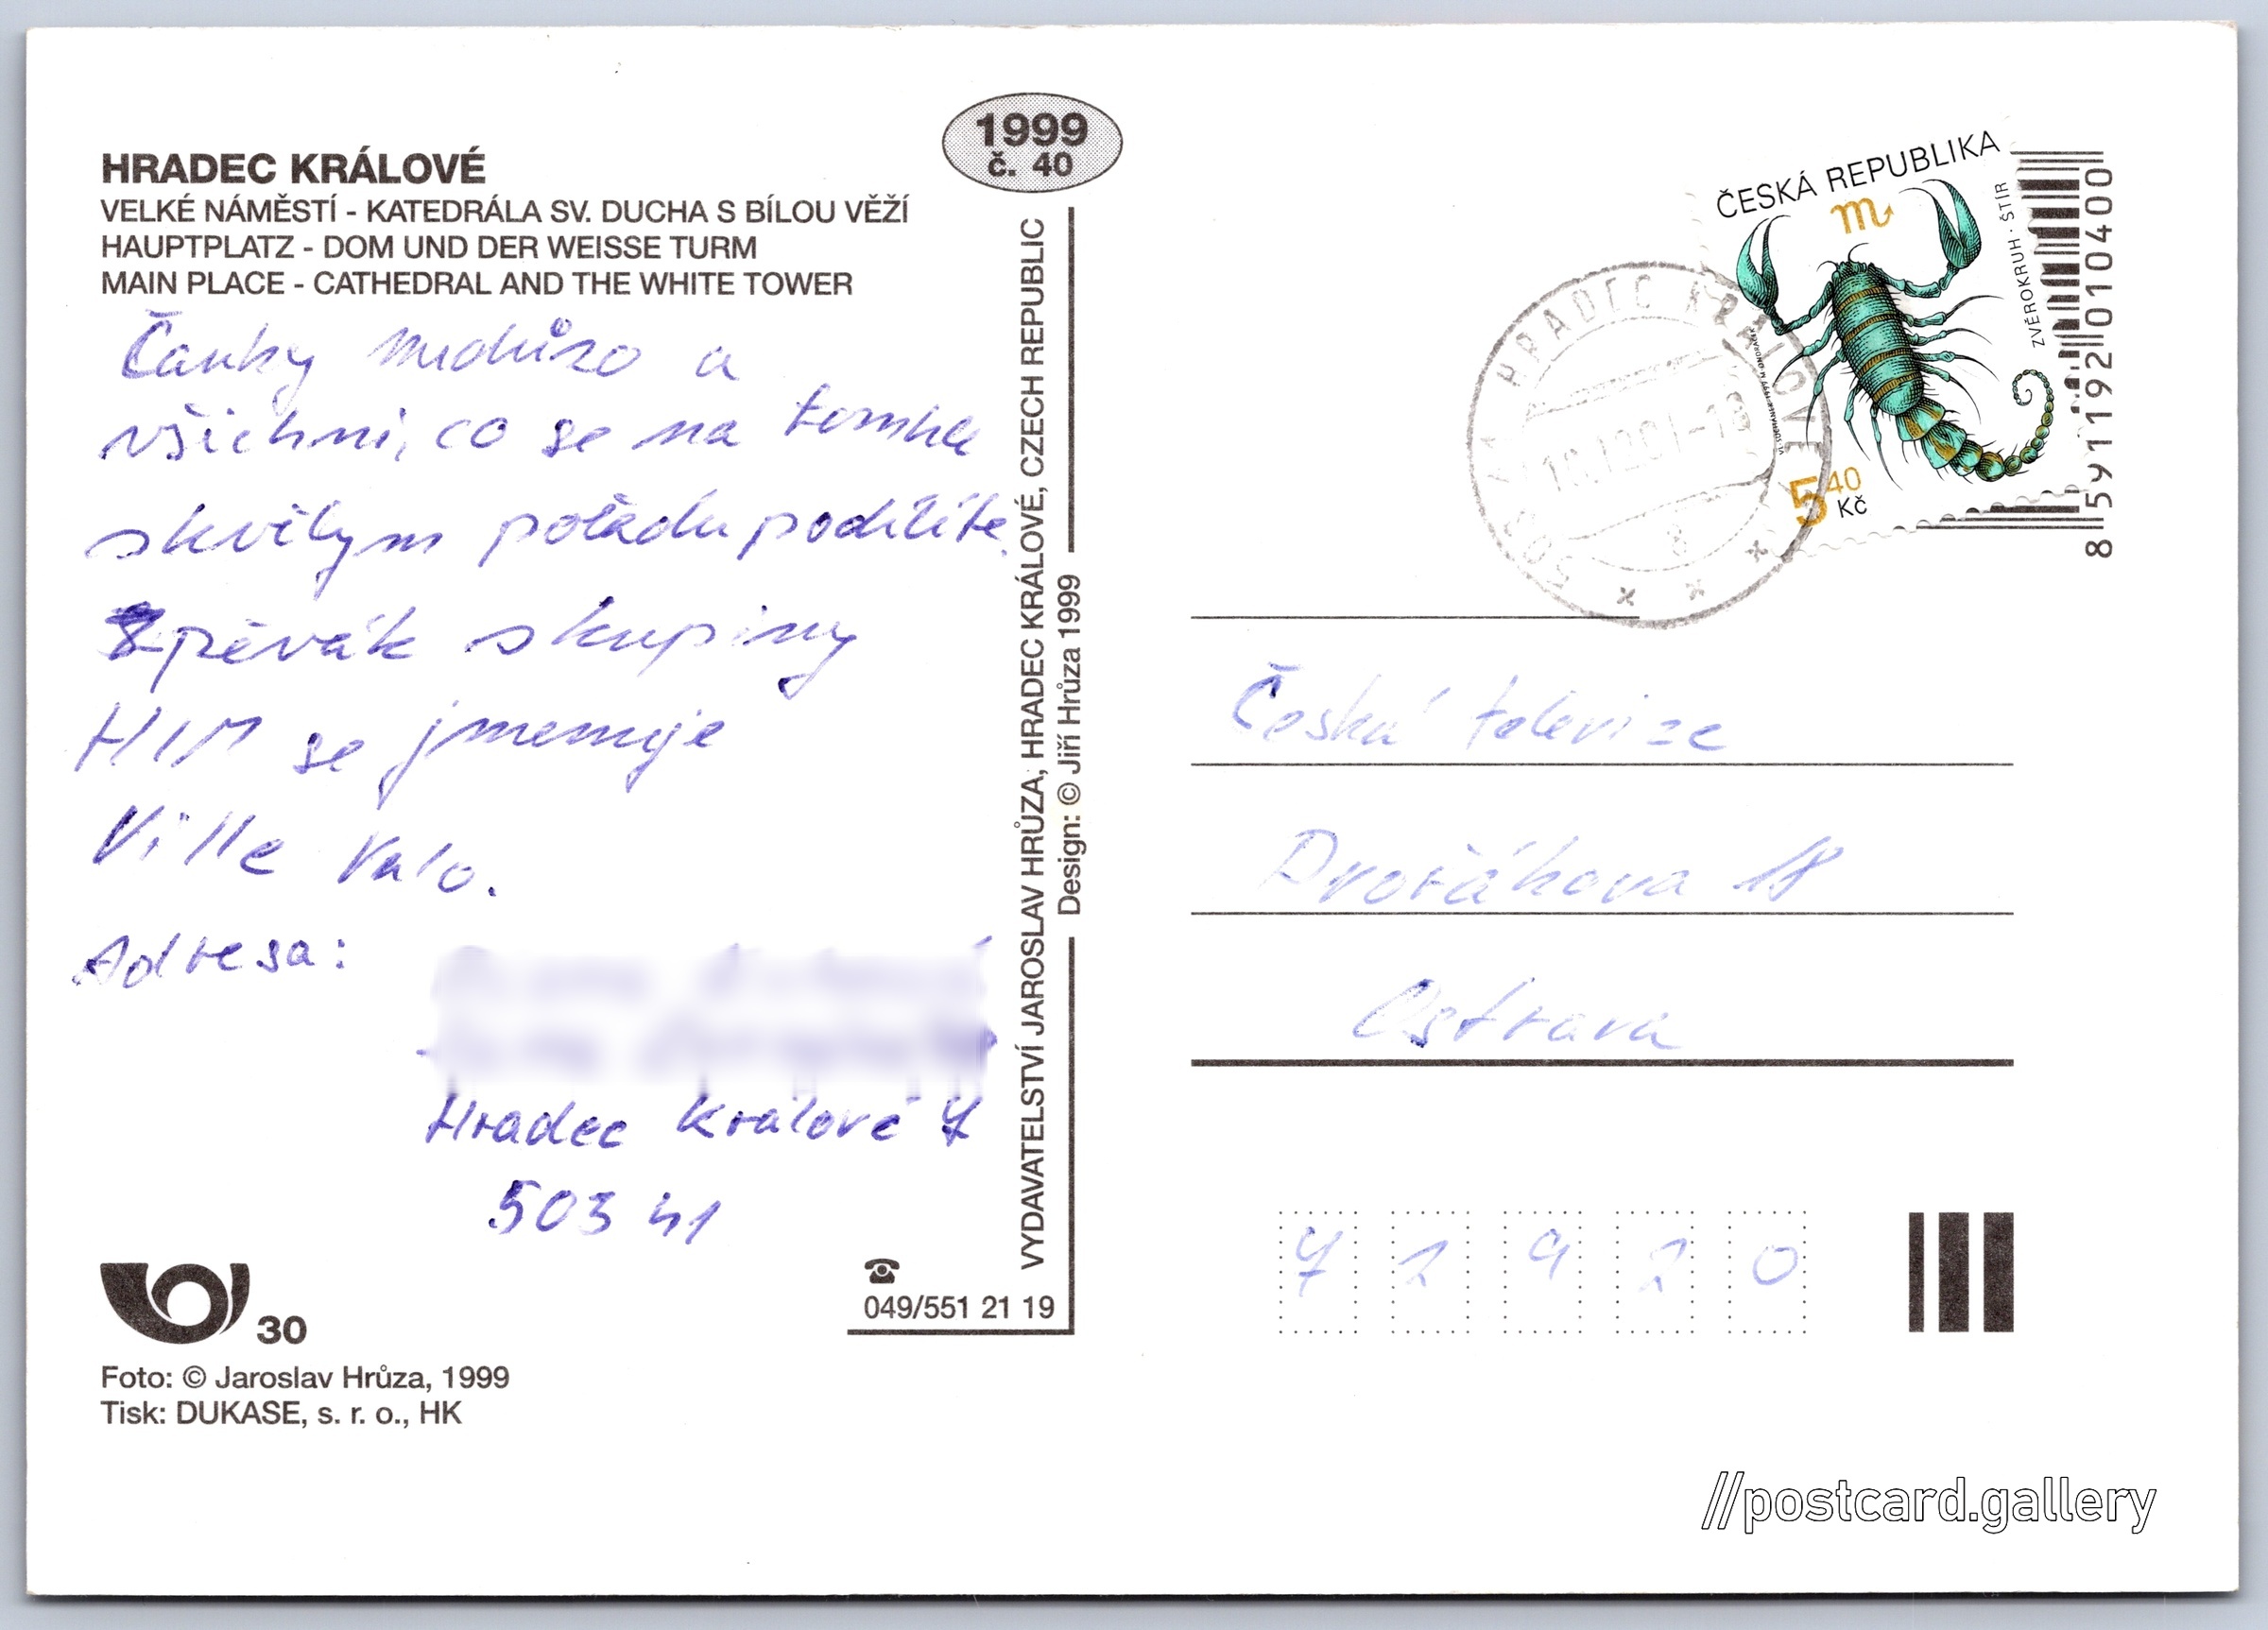 HRADEC KRÁLOVÉ
VELKÉ NÁMĚSTÍ - KATEDRÁLA SV. DUCHA S BÍLOU VĚŽÍ
HAUPTPLATZ - DOM UND DER WEISSE TURM
MAIN PLACE - CATHEDRAL AND THE WHITE TOWER
Čauky Medůzo a
všichni, co se na tomhle
skvělým pořadu podílíte.
Zpěvák skupiny
HIM se jmenuje
Ville Valo.
Adresa:
Hradec Králové 7
503 41
30
Foto: © Jaroslav Hrůza, 1999
Tisk: DUKASE, s. r. o., HK
1999
č. 40
VYDAVATELSTVÍ JAROSLAV HRŮZA, HRADEC KRÁLOVÉ, CZECH REPUBLIC
Design: © Jiří Hrůza 1999
049/551 21 19
ČESKÁ REPUBLIKA
ZVĚROKRUH · ŠTÍR
5 40 Kč
8 591192 010400
HRADEC KRÁLOVÉ
Česká televize
Dvořákova 18
Ostrava
7 2 9 2 0
//postcard.gallery